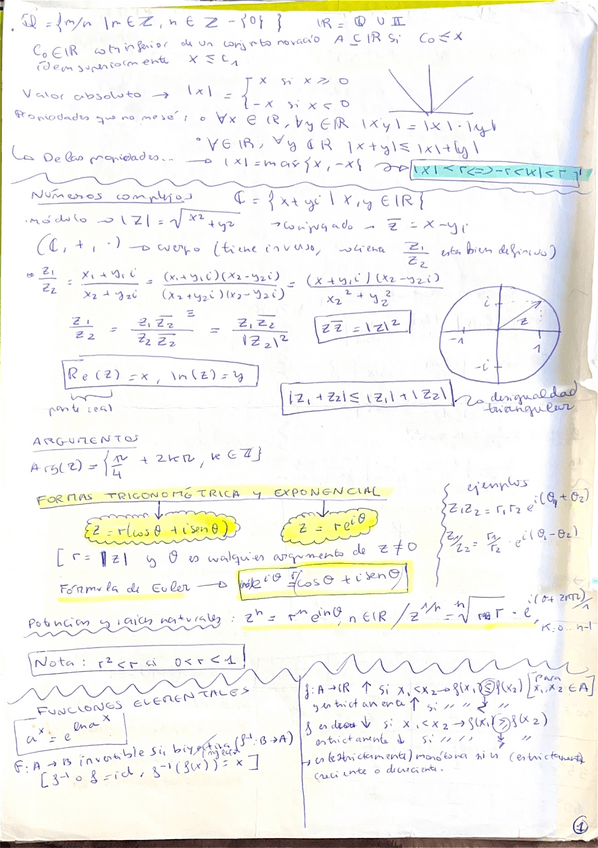 Q = {m/n | m ∈ Z, n ∈ Z - {0}} IR = Q ∪ II
C₀ ∈ IR cota inferior de un conjunto no vacío A ⊆ IR si C₀ ≤ x
Idem superiormente x ≤ C₁
Valor absoluto → |x| = { x si x ≥ 0
-x si x < 0
Propiedades que no me sé: ∘ ∀x ∈ IR, ∀y ∈ IR |xy| = |x|·|y|
∘ ∀ ∈ IR, ∀y ∈ IR |x+y| ≤ |x|+|y|
De las propiedades... → |x| = max{x, -x} |x| < r <=> -r < x < r
Números complejos ℂ = {x + yi | x, y ∈ IR}
módulo → |z| = √x² + y² → conjugado → z̄ = x - yi
(ℂ, +, ·) → cuerpo (tiene inverso, z₁/z₂ esta bien definido)
z₁/z₂ = x₁ + y₁i / x₂ + y₂i = (x₁ + y₁i)(x₂ - y₂i) / (x₂ + y₂i)(x₂ - y₂i) = (x₁ + y₁i)(x₂ - y₂i) / x₂² + y₂²
z₁/z₂ = z₁z̄₂ / z₂z̄₂ = z₁z̄₂ / |z₂|² zz̄ = |z|²
i z -1 1 -i
Re(z) = x, Im(z) = y
parte real
|z₁ + z₂| ≤ |z₁| + |z₂| → desigualdad
triangular
ARGUMENTOS
Arg(z) = {π/4 + 2kπ, k ∈ Z}
FORMAS TRIGONOMÉTRICA y EXPONENCIAL
z = r(cosθ + i senθ) z = re^iθ
[r = |z| y θ es cualquier argumento de z ≠ 0
Fórmula de Euler → e^iθ = (cosθ + i senθ)
ejemplos
z₁z₂ = r₁r₂ e^i(θ₁+θ₂)
z₁/z₂ = r₁/r₂ · e^i(θ₁-θ₂)
Potencias y raíces naturales: zⁿ = rⁿ e^inθ, n ∈ IR / z^1/n = ⁿ√r · e^i(θ+2kπ)/n, k: 0...n-1
Nota: r² < r 0 < r < 1
FUNCIONES ELEMENTALES
a^x = e^ln a^x
f: A → B invertible sii biyectiva (f⁻¹: B → A)
[f⁻¹ ∘ f = id, f⁻¹(f(x)) = x]
f: A → IR ↑ si x₁ < x₂ → f(x₁) ≤ f(x₂) [para x₁, x₂ ∈ A]
y estrictamente ↑ si " " <
f es decrec ↓ si x₁ < x₂ → f(x₁) ≥ f(x₂)
estrictamente ↓ si " " >
→ es (estrictamente) monótona si es (estrictamente)
creciente o decreciente.
1